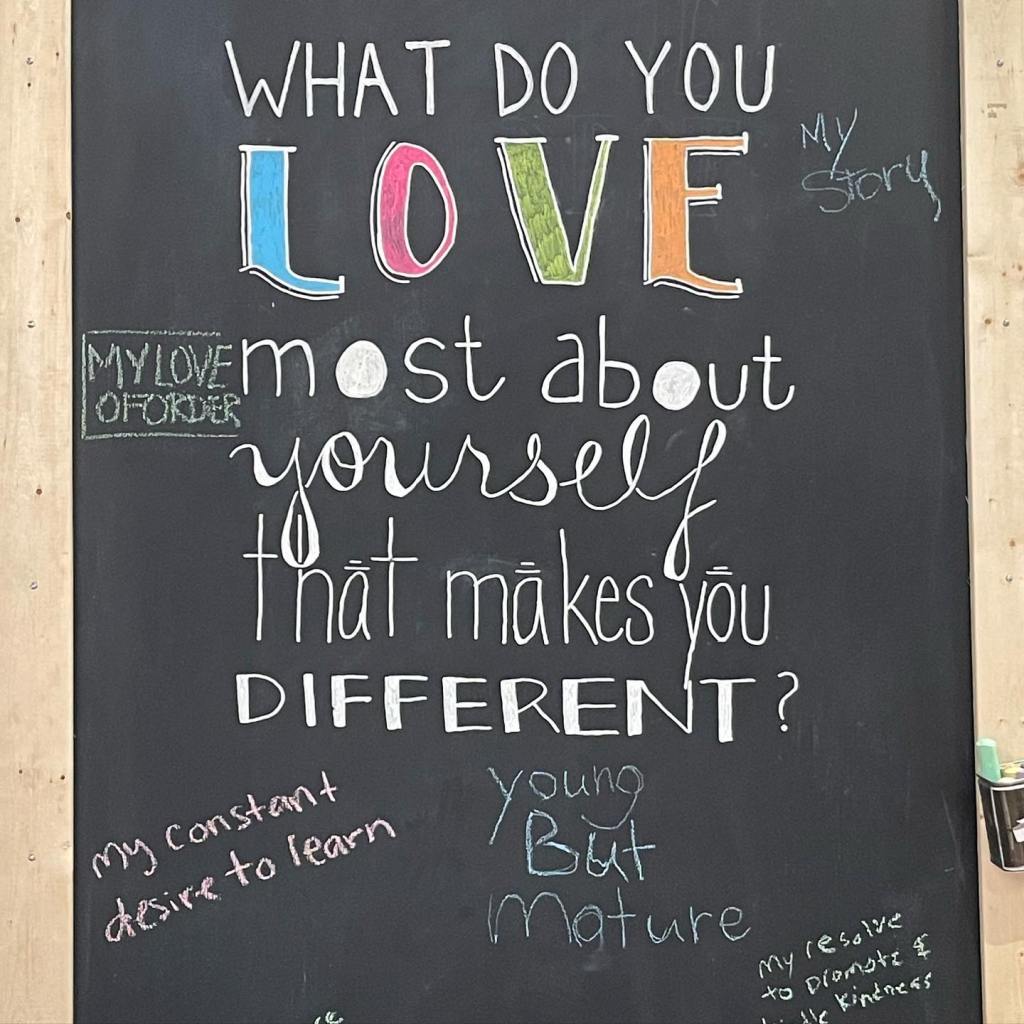 WHAT DO YOU
LOVE
MY
Story
most about
MY LOVE
OF ORDER
yourself
thāt mākes yōu
DIFFERENT?
my constant
desire to learn
young
But
Mature
my resolve
to promote &
kindness